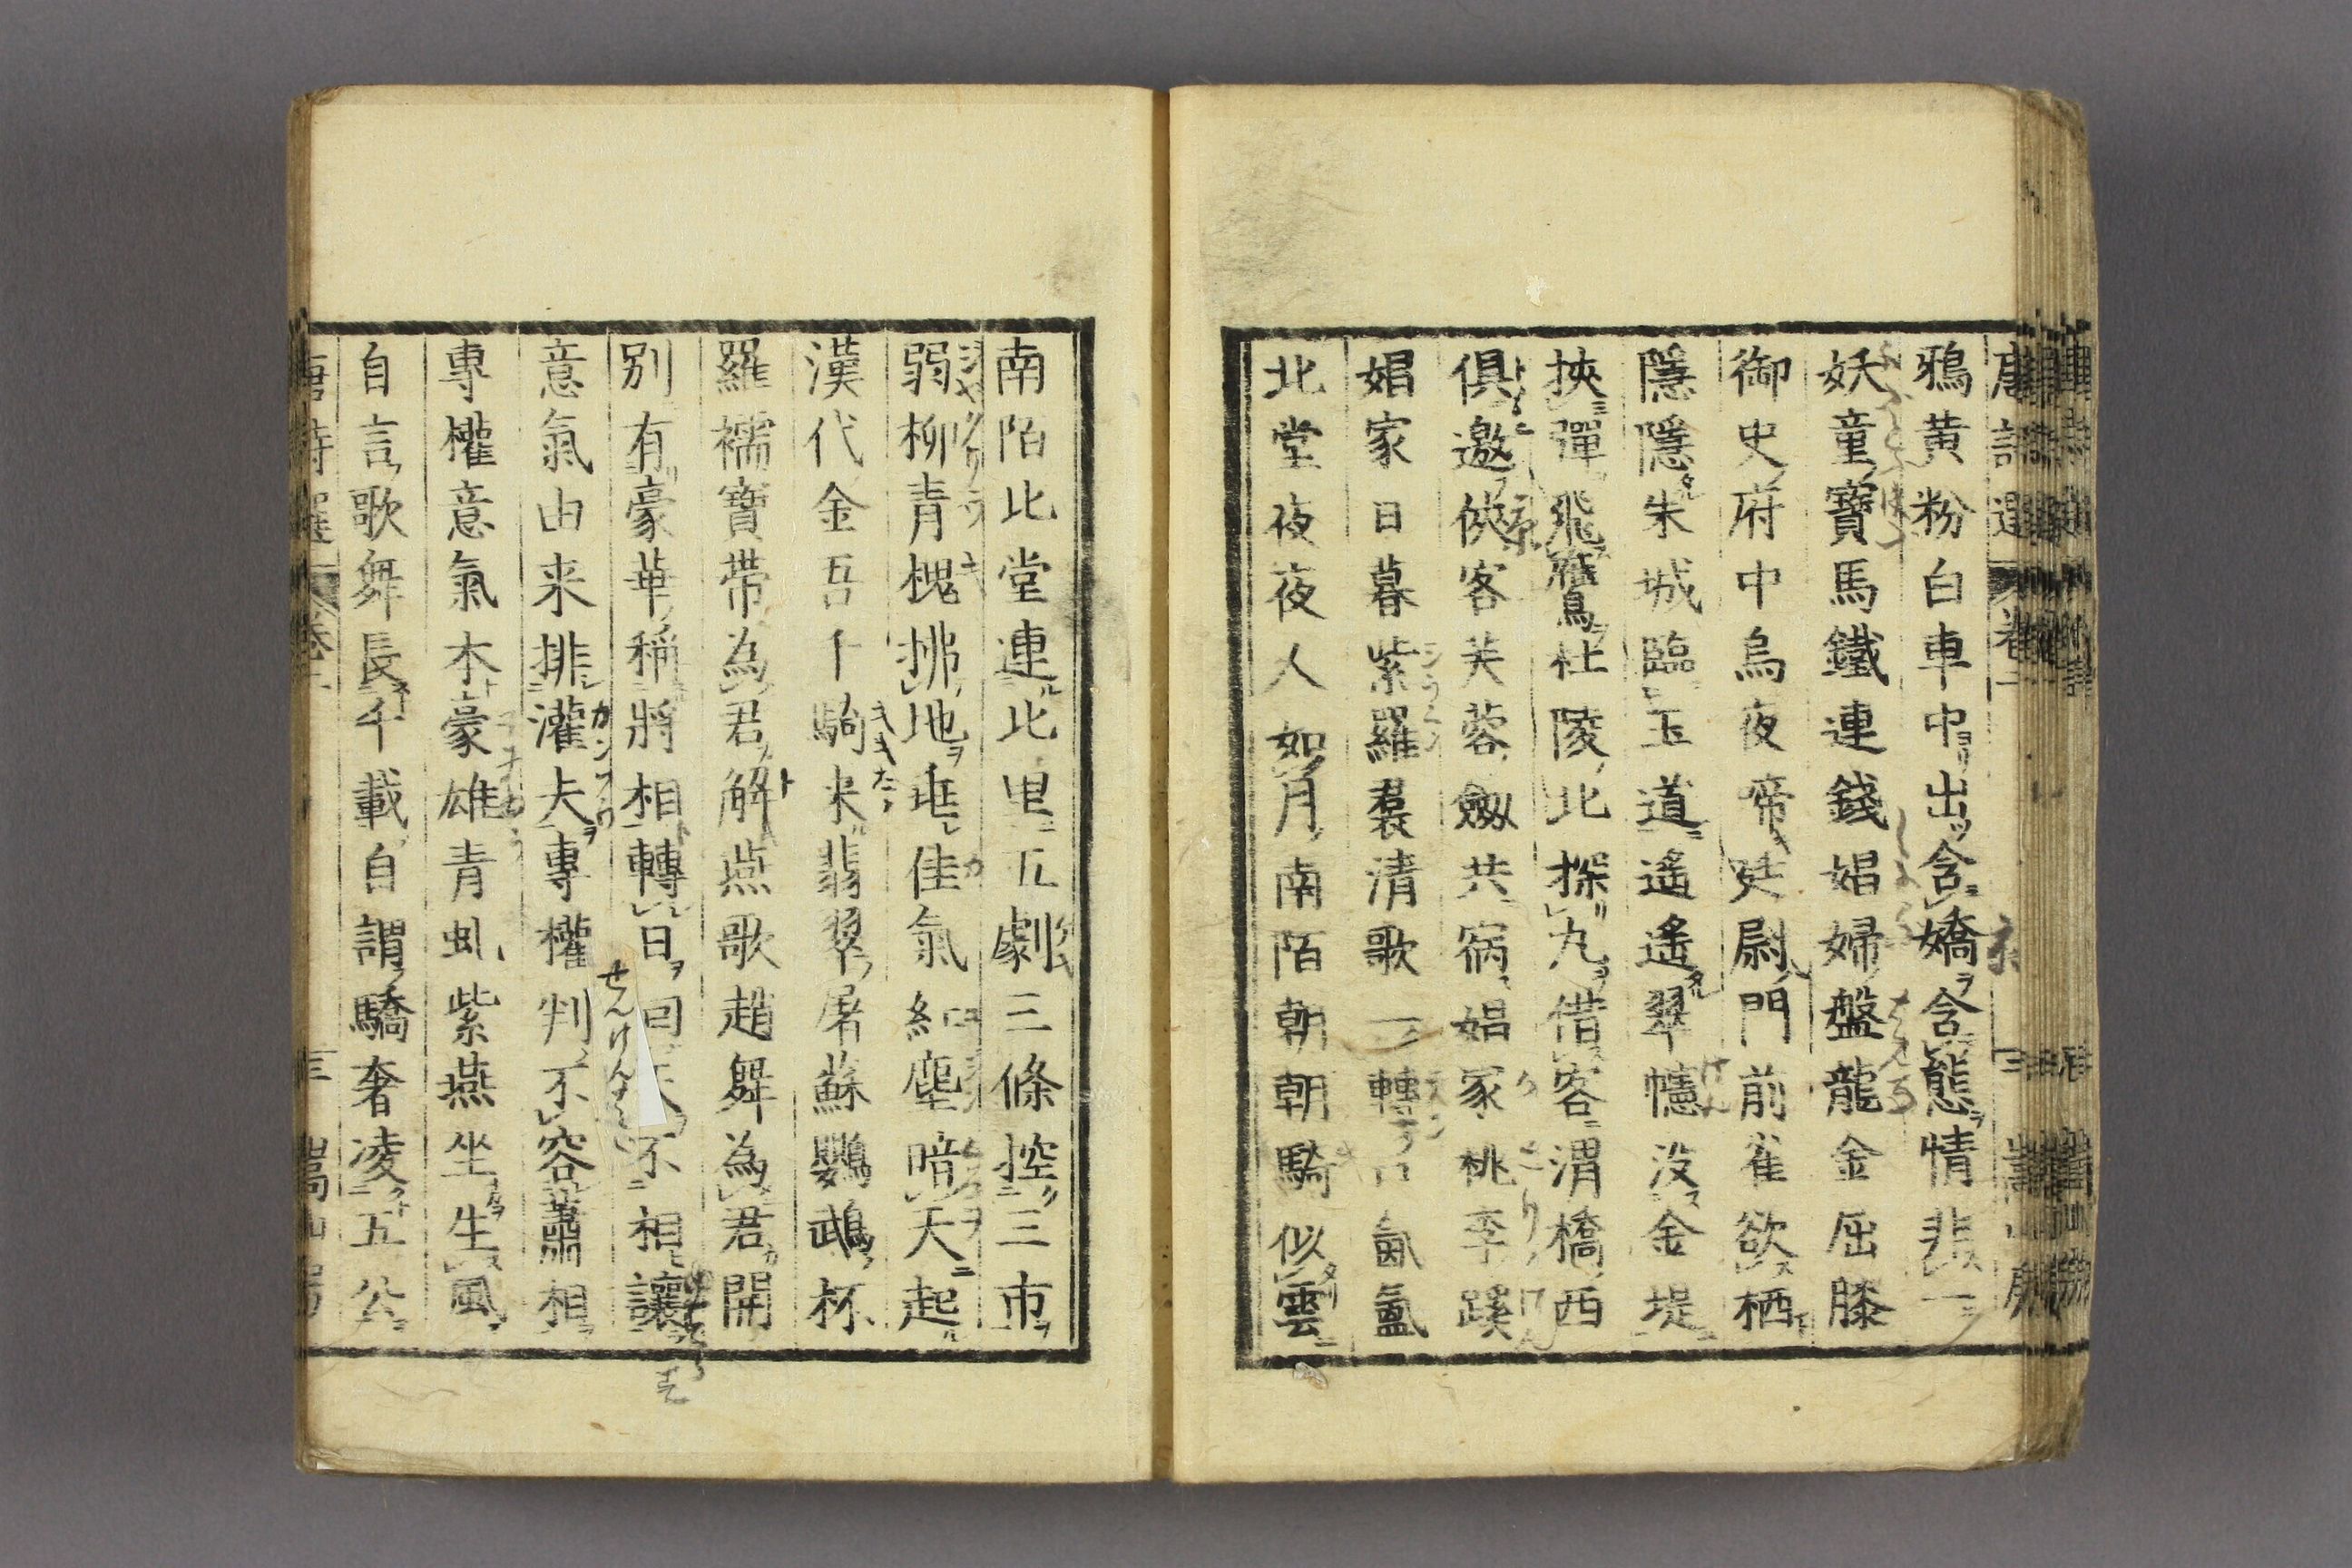 唐詩選 卷二 三 嵩山房
鴉黄粉白車中出含嬌含態情非一
妖童寶馬鐵連錢娼婦盤龍金屈膝
御史府中烏夜啼廷尉門前雀欲栖
隱隱朱城臨玉道遙遙翠幰没金堤
挾彈飛鷹杜陵北探丸借客渭橋西
俱邀俠客芙蓉劔共宿娼家桃李蹊
娼家日暮紫羅裙清歌一囀口氤氳
北堂夜夜人如月南陌朝朝騎似雲
南陌北堂連北里五劇三條控三市
弱柳青槐拂地垂佳氣紅塵暗天起
漢代金吾千騎来翡翠屠蘇鸚鵡杯
羅襦寶帶為君解燕歌趙舞為君開
別有豪華稱將相轉日回天不相讓
意氣由来排灌夫專權判不容蕭相
專權意氣本豪雄青虬紫燕坐生風
自言歌舞長千載自謂驕奢凌五公